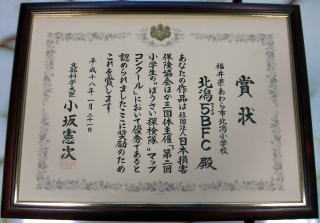 賞状
福井県あわら市北潟小学校
北潟5BFC殿
あなたの作品は社団法人日本損害
保険協会ほか三団体主催、第二回
小学生の"ぼうさい探検隊"マップ
コンクールにおいて優秀であると
認められました ここに奨励のため
これを賞します
平成十八年一月二十一日
文部科学大臣 小坂憲次